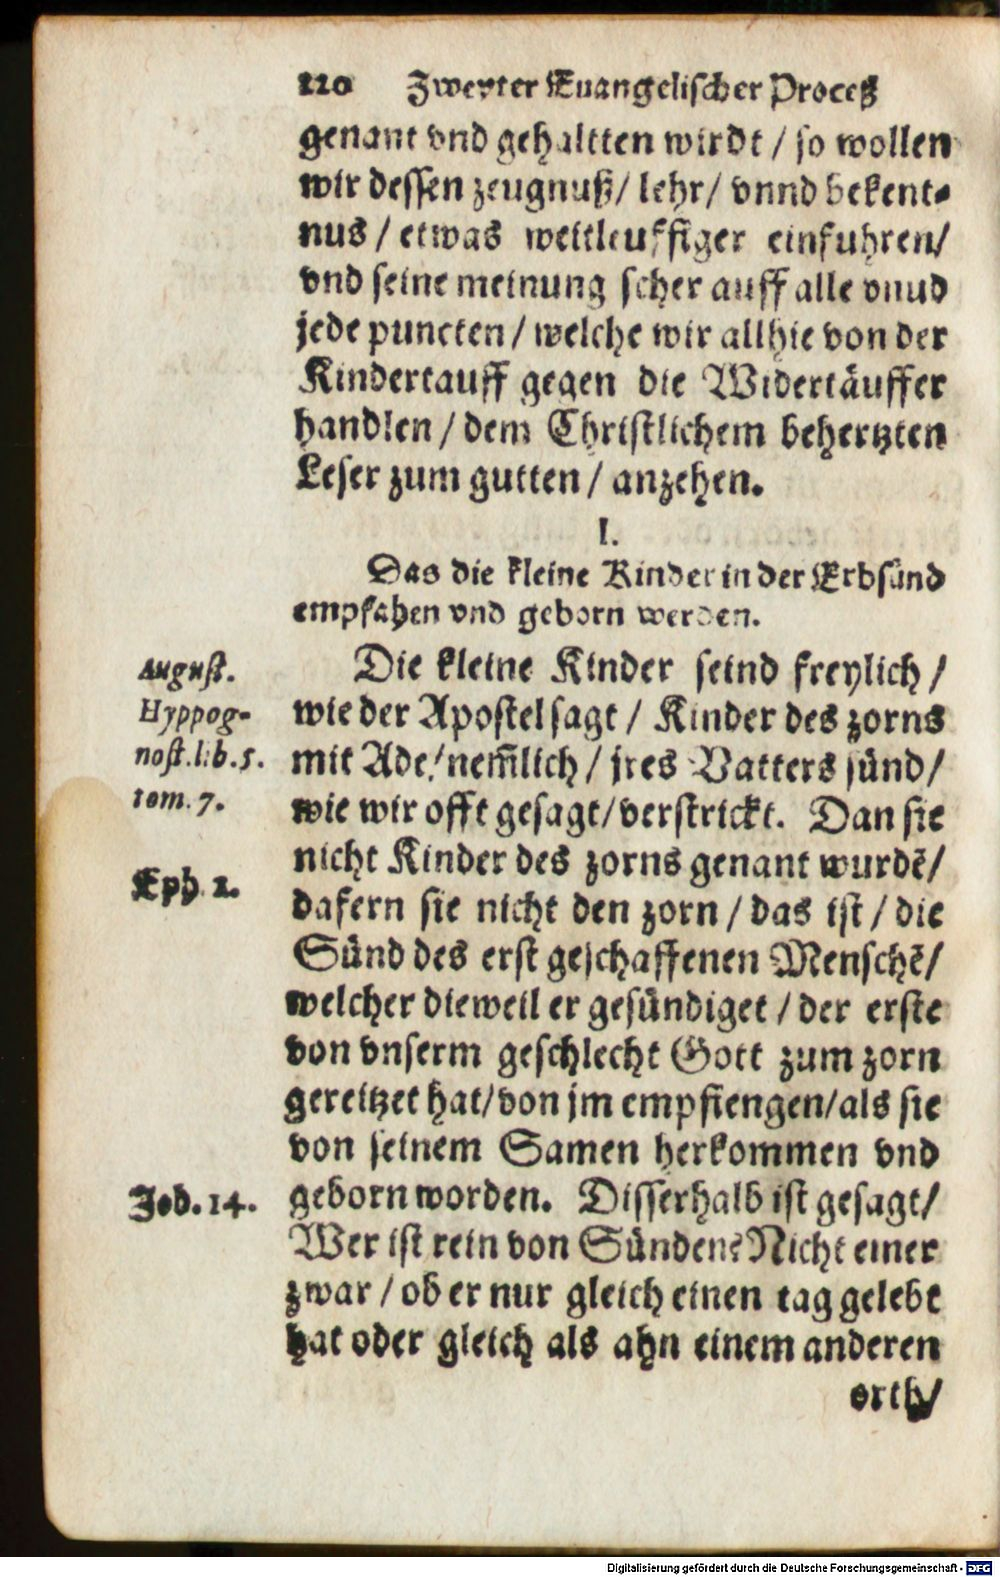 120 Zweyter Euangelischer Proceß
genant vnd gehaltten wirdt / so wollen
wir dessen zeugnuß / lehr / vnnd bekent-
nus / etwas weitleuffiger einfuhren /
vnd seine meinung scher auff alle vnud
jede puncten / welche wir allhie von der
Kindertauff gegen die Widertäuffer
handlen / dem Christlichem behertzten
Leser zum gutten / anzehen.
I.
Das die kleine Kinder in der Erbsünd
empfahen vnd geborn werden.
August.
Hyppog-
nost. lib. 5.
tom. 7.
Die kleine Kinder seind freylich /
wie der Apostel sagt / Kinder des zorns
mit Ade / nem̃lich / jres Vatters sünd /
wie wir offt gesagt / verstrickt. Dan sie
Eph. 2.
nicht Kinder des zorns genant wurdẽ /
dafern sie nicht den zorn / das ist / die
Sünd des erst geschaffenen Menschẽ /
welcher dieweil er gesündiget / der erste
von vnserm geschlecht Gott zum zorn
gereitzet hat / von jm empfiengen / als sie
von seinem Samen herkommen vnd
Job. 14.
geborn worden. Disserhalb ist gesagt /
Wer ist rein von Sünden? Nicht einer
zwar / ob er nur gleich einen tag gelebt
hat oder gleich als ahn einem anderen
orth /
Digitalisierung gefördert durch die Deutsche Forschungsgemeinschaft - DFG